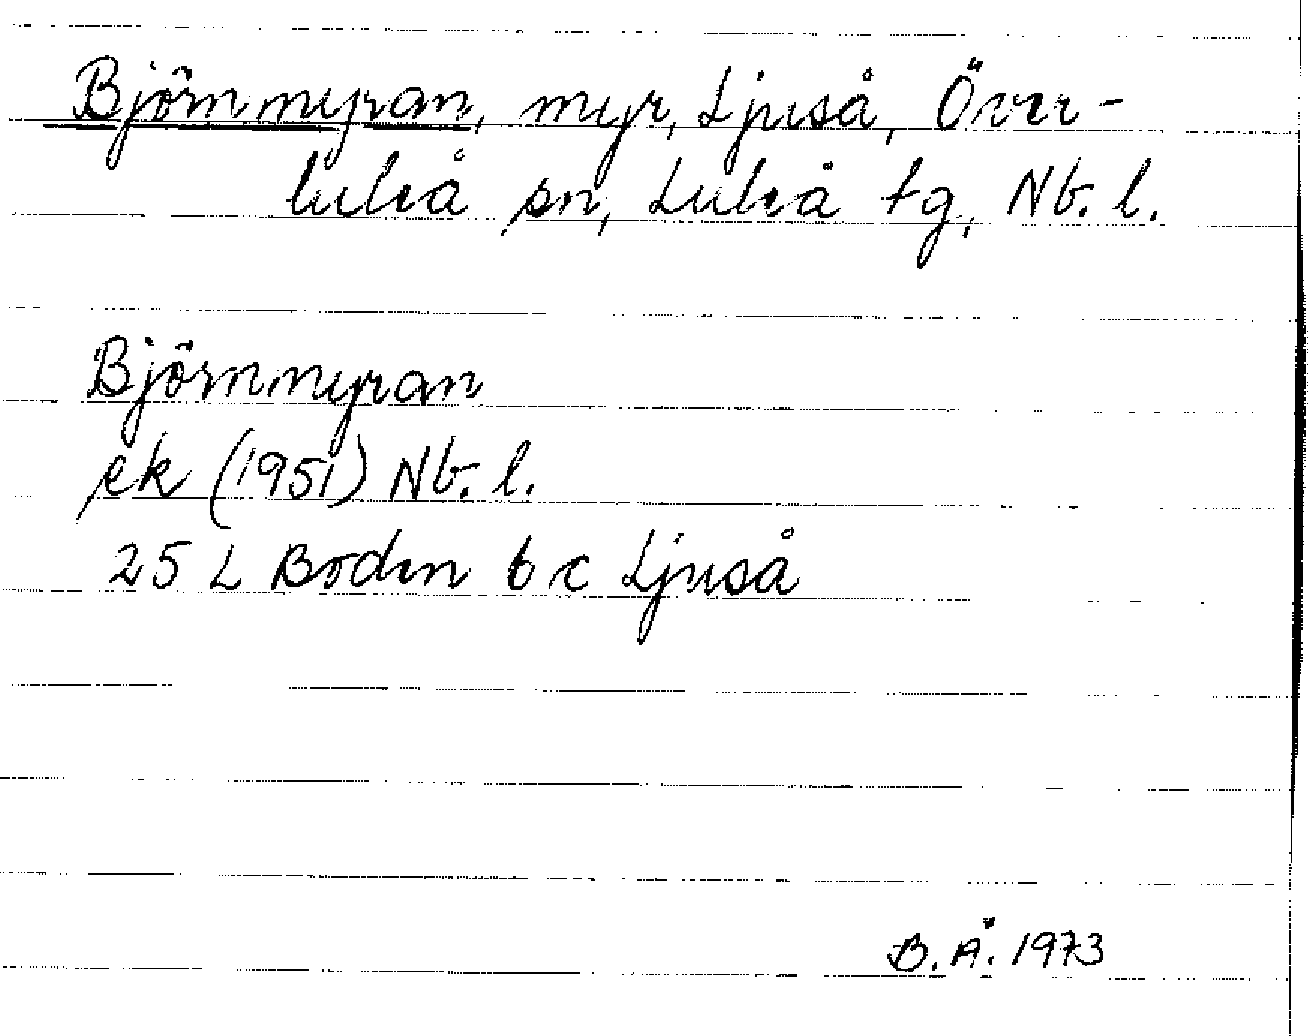 Björnmyran, myr, Ljuså, Över-
luleå sn, Luleå tg, Nb. l.
Björnmyran
ek (1951) Nb. l.
25 L Boden b c Ljuså
B. Å. 1973